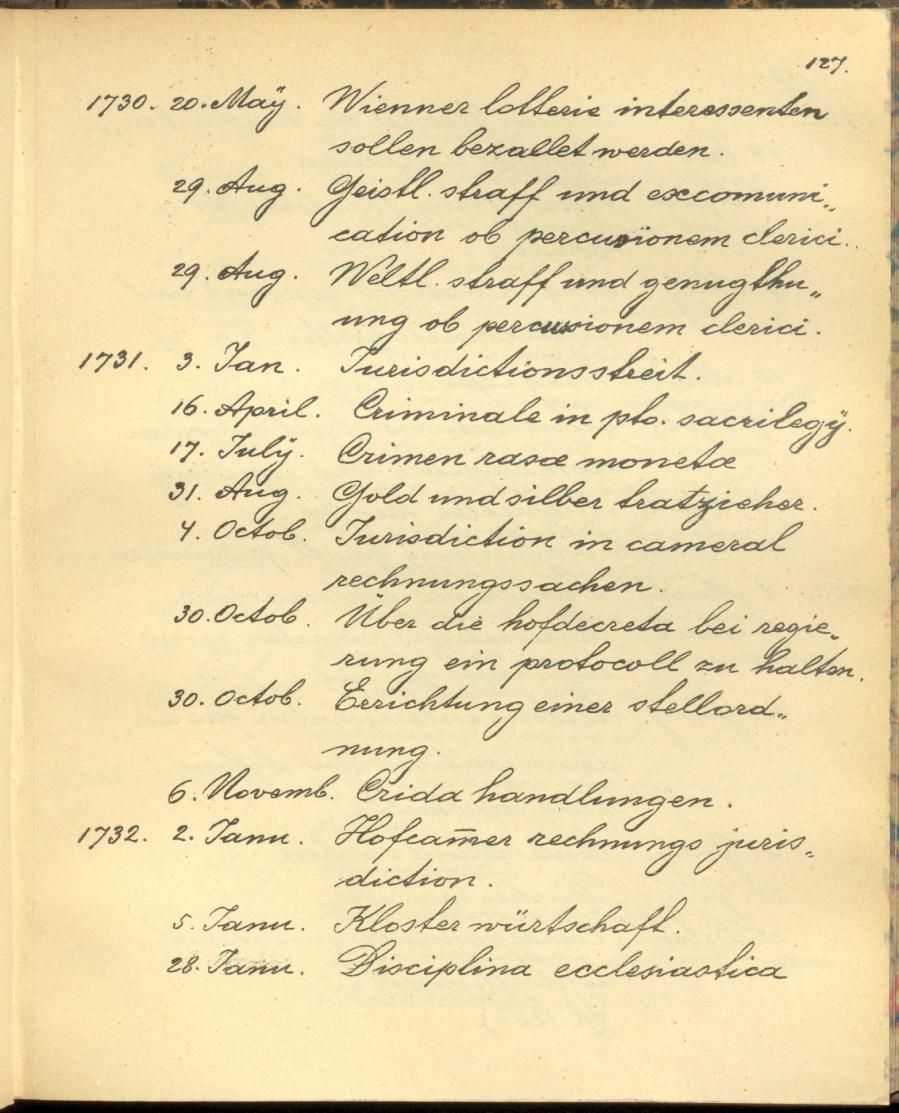 127.
1730. 20. Maÿ. Wienner lotterie interessenten
sollen bezallet werden.
29. Aug. Geistl. straff und excomuni„
cation ob percusionem clerici.
29. Aug. Weltl. straff und genugthu„
ung ob percusionem clerici.
1731. 3. Ian. Iurisdictionsstreit.
16. April. Criminale in pto. sacrilegÿ.
17. Julÿ. Crimen rasæ monetæ
31. Aug. Gold und silber tratzieher.
4. Octob. Iurisdiction in cameral
rechnungssachen.
30. Octob. Über die hofdecreta bei regie„
rung ein protocoll zu halten.
30. Octob. Errichtung einer stellord„
nung.
6. Novemb. Crida handlungen.
1732. 2. Ianu. Hofcam̄er rechnungs juris„
diction.
5. Ianu. Kloster würtschaft.
28. Ianu. Disciplina ecclesiastica